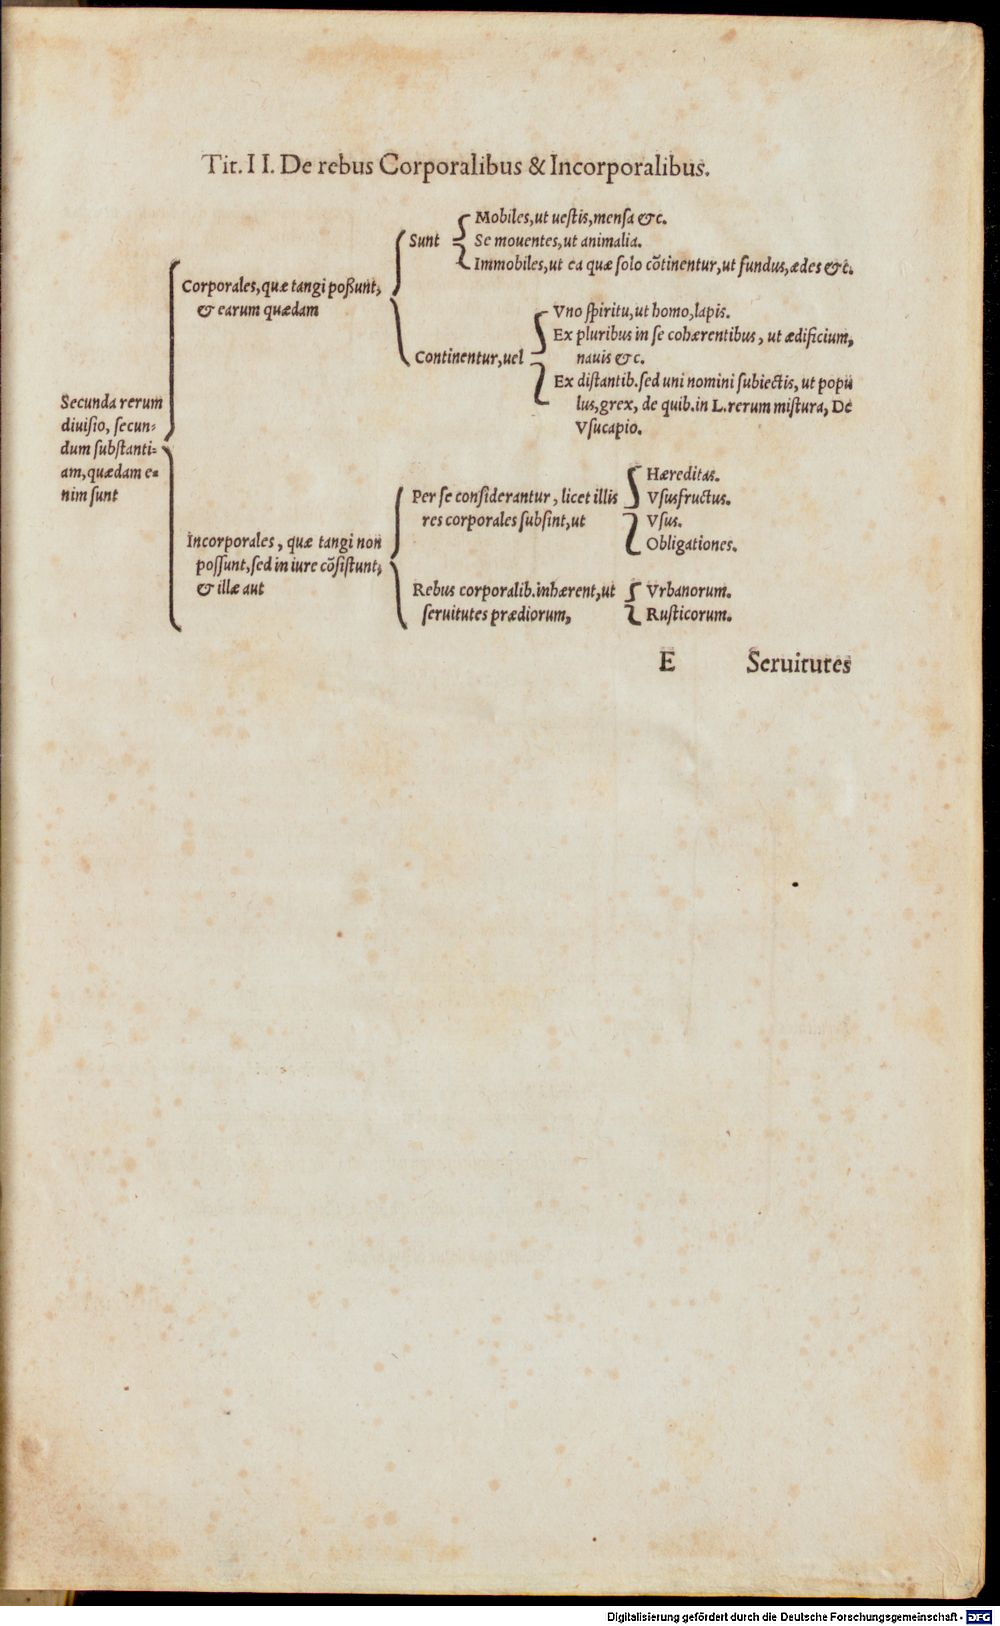 Tit. II. De rebus Corporalibus & Incorporalibus.
Secunda rerum
diuisio, secun-
dum substanti-
am, quædam e-
nim sunt
Corporales, quæ tangi poßunt,
& earum quædam
Sunt
Mobiles, ut uestis, mensa &c.
Se mouentes, ut animalia.
Immobiles, ut ea quæ solo cõtinentur, ut fundus, ædes &c.
Continentur, uel
Vno spiritu, ut homo, lapis.
Ex pluribus in se cohærentibus, ut ædificium,
nauis &c.
Ex distantib. sed uni nomini subiectis, ut popu
lus, grex, de quib. in L. rerum mistura, De
Vsucapio.
Incorporales, quæ tangi non
possunt, sed in iure cõsistunt,
& illæ aut
Per se considerantur, licet illis
res corporales subsint, ut
Hæreditas.
Vsusfructus.
Vsus.
Obligationes.
Rebus corporalib. inhærent, ut
seruitutes prædiorum,
Vrbanorum.
Rusticorum.
E Seruitutes
Digitalisierung gefördert durch die Deutsche Forschungsgemeinschaft - DFG